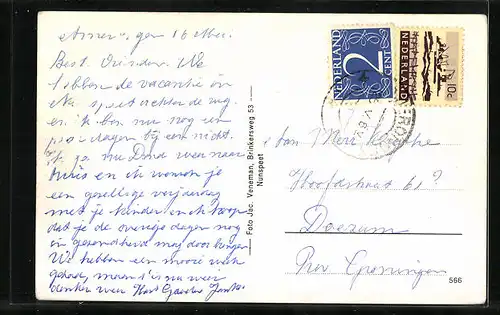 16 Mei.
Best Vrienden. We
hebben de vacantie in
Nunspeet achter de rug
en ik ben nu nog een
paar dagen bij een nicht.
ik ga nu Dond weer naar
huis en ik wensch je
een gezellige verjaardag
met je kinderen en ik hoop
dat je de overige dagen nog
in gezondheid mag doorbrengen
We hebben een mooie week
gehad,
Hart Groeten
Foto Jac. Veneman, Brinkersweg 53 —
Nunspeet
NEDERLAND
2
CENT
NEDERLAND
10c
Aan
Hoofdstraat 61?
Doezum
Prov Groningen
S66